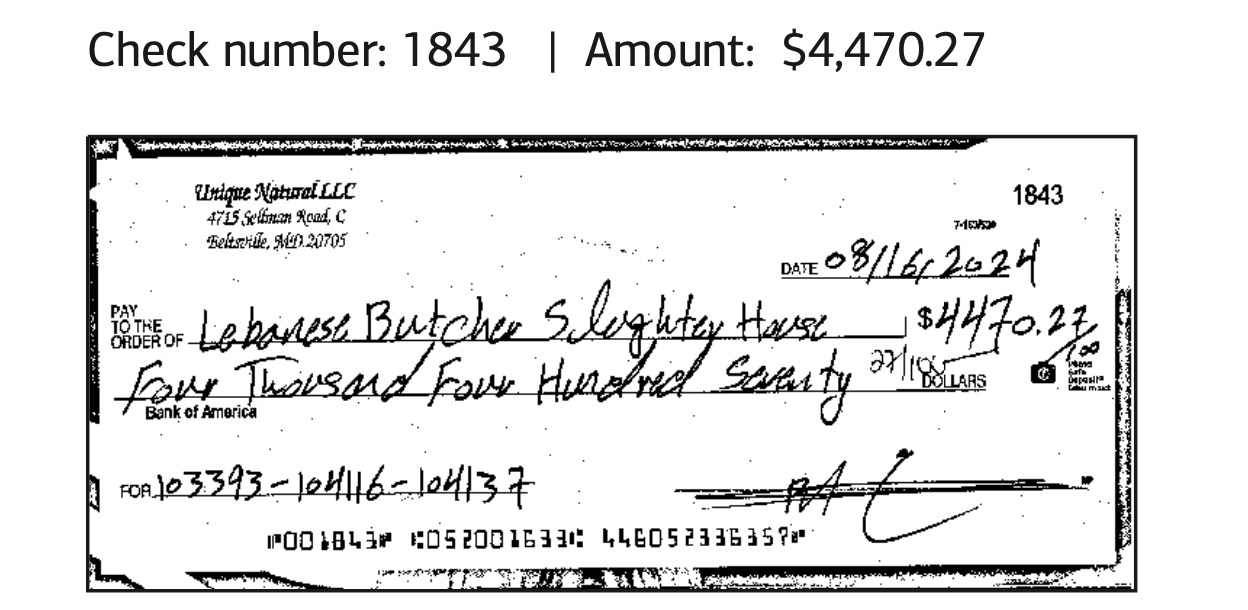 Check number: 1843 | Amount: $4,470.27
Unique Natural LLC
4715 Sellman Road, C
Beltsville, MD.20705
1843
DATE 08/16/2024
PAY
TO THE
ORDER OF Lebanese Butcher Sloghter House $4470.27
Four Thousand Four Hundred Seventy 27/100 DOLLARS
Bank of America
FOR 103393-104116-104137
⑈001843⑈ ⑆052001633⑆ 446052336357⑈